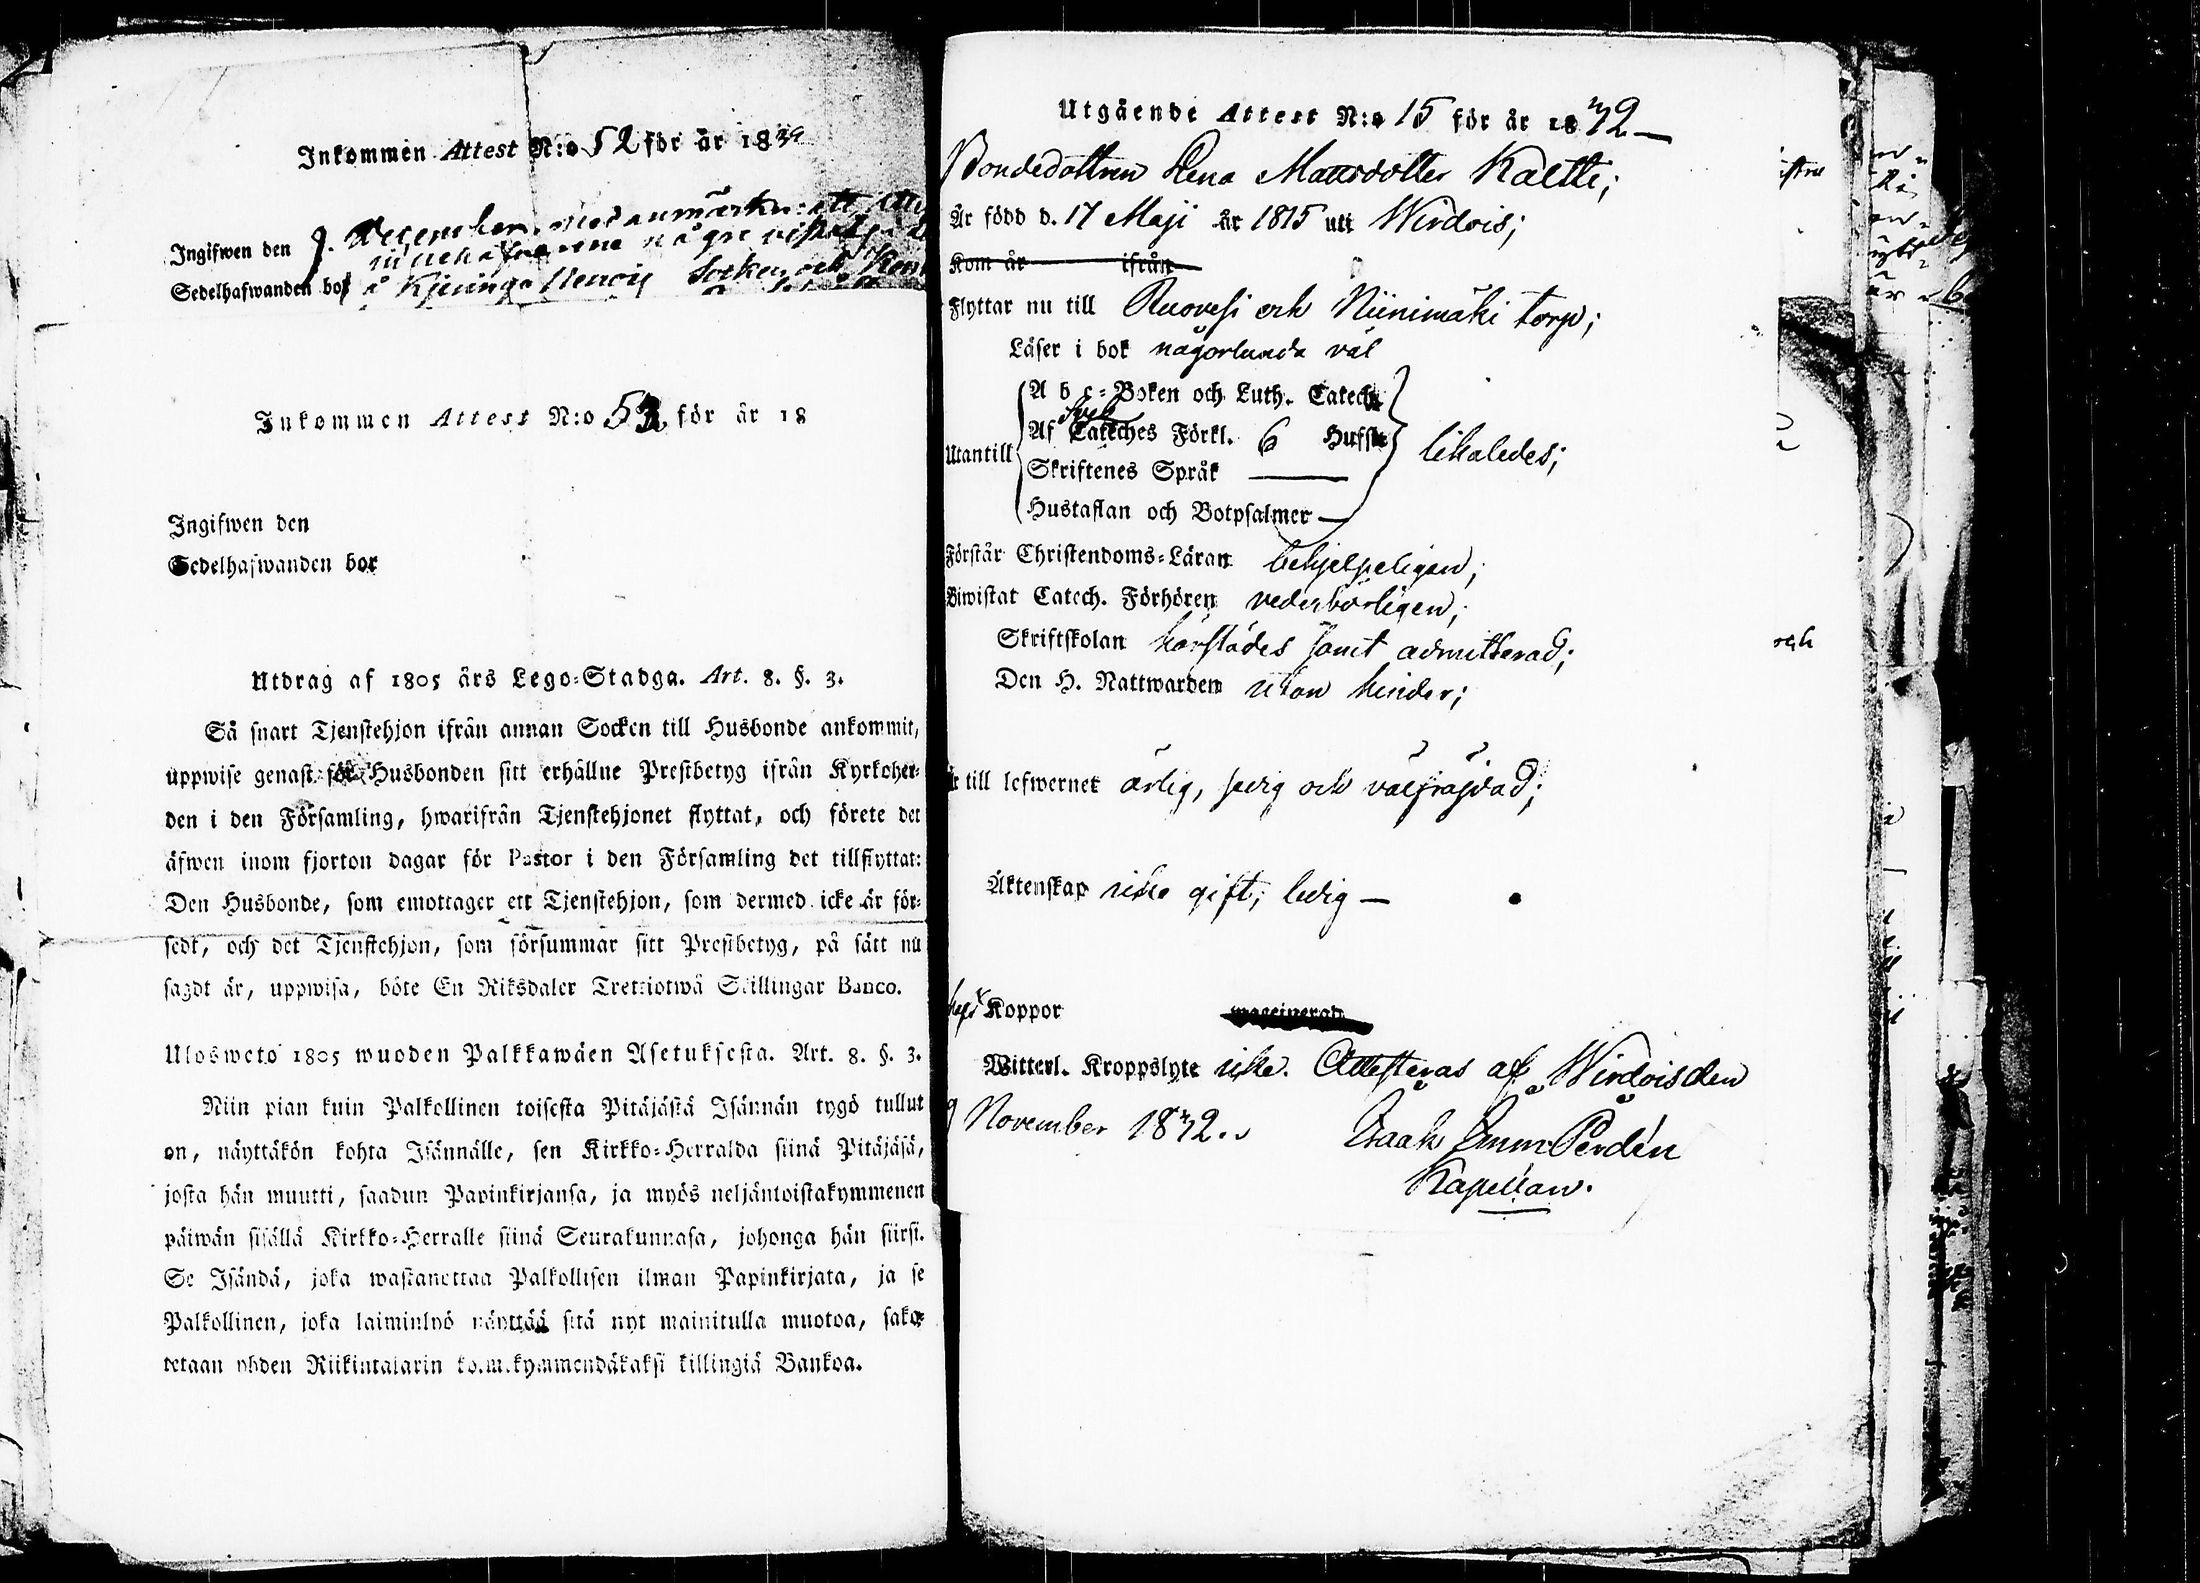 Inkommen Attest N:o 52 för år 1839
Ingifwen den 9. December, med anmärkn: att
innehafvarene någre
Sedelhafwanden bor å Kjeninga Socken och
Inkommen Attest N:o 53 för år 18
Ingifwen den
Sedelhafwanden bor
Utdrag af 1805 års Lego=Stadga. Art. 8. §. 3.
Så snart Tjenstehjon ifrån annan Socken till Husbonde ankommit,
uppwise genast för Husbonden sitt erhållne Prestbetyg ifrån Kyrkoher=
den i den Församling, hwarifrån Tjenstehjonet flyttat, och förete det
äfwen inom fjorton dagar för Pastor i den Församling det tillflyttat:
Den Husbonde, som emottager ett Tjenstehjon, som dermed icke är för=
sedt, och det Tjenstehjon, som försummar sitt Prestbetyg, på sätt nu
sagdt är, uppwisa, böte En Riksdaler Trettiotwå Skillingar Banco.
Ulosweto 1805 wuoden Palkkawäen Asetuksesta. Art. 8. §. 3.
Niin pian kuin Palkollinen toisesta Pitäjästä Isännän tygö tullut
on, näyttäkön kohta Isännälle, sen Kirkko=Herralda siinä Pitäjäsä,
josta hän muutti, saadun Papinkirjansa, ja myös neljäntoistakymmenen
päiwän sisällä Kirkko=Herralle siinä Seurakunnasa, johonga hän siirsi.
Se Isändä, joka wastanottaa Palkollisen ilman Papinkirjata, ja se
Palkollinen, joka laiminlyö näyttää sitä nyt mainitulla muotoa, sako=
tetaan yhden Riikintalarin kolmekymmendäkaksi killingiä Bankoa.
Utgående Attest N:o 15 för år 1832
Bondedottren Lena Mattsdotter Kaltti;
Är född d. 17 Maji År 1815 uti Wirdois;
Kom år ifrån
Flyttar nu till Ruovesi och Niinimäki torp;
Läser i bok någorlunda väl
A b c=Boken och Luth. Catech.
Sveb
Af Catéches Förkl. 6 Hufst.
Utantill likaledes;
Skriftenes Språk —
Hustaflan och Botpsalmer —
Förstår Christendoms=Läran behjelpeligen;
Biwistat Catech. Förhören vederbörligen;
Skriftskolan härstädes samt admitterad;
Den H. Nattwarden utan hinder;
Är till lefwernet ärlig, sedig och välfräjdad;
Äktenskap icke gift; ledig —
haft Koppor vaccinerad
Witterl. Kroppslyte icke. Attesteras af Wirdois den
9 November 1832.
Isaak Emm Perdén
Kapellan.
och